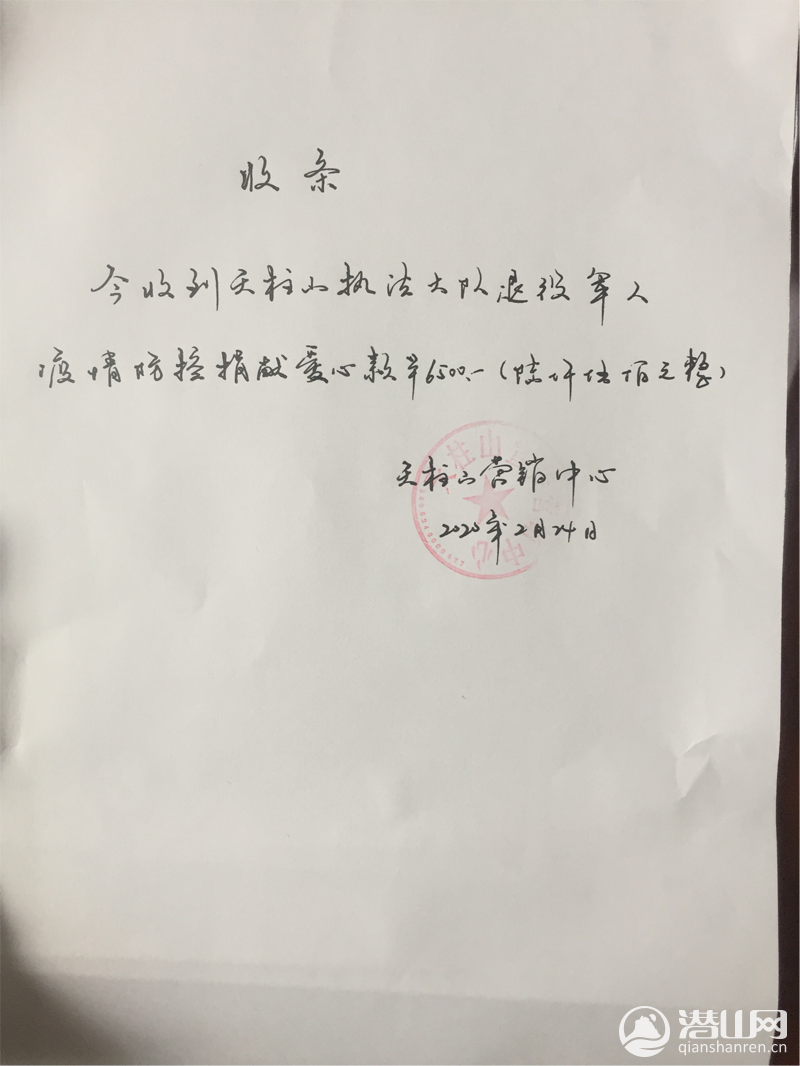 收条
今收到天柱山执法大队退役军人
疫情防控捐献爱心款¥6500.—(陆仟伍佰元整)
天柱山营销中心
2020年2月24日
柱山
中心
潜山网
qianshanren.cn